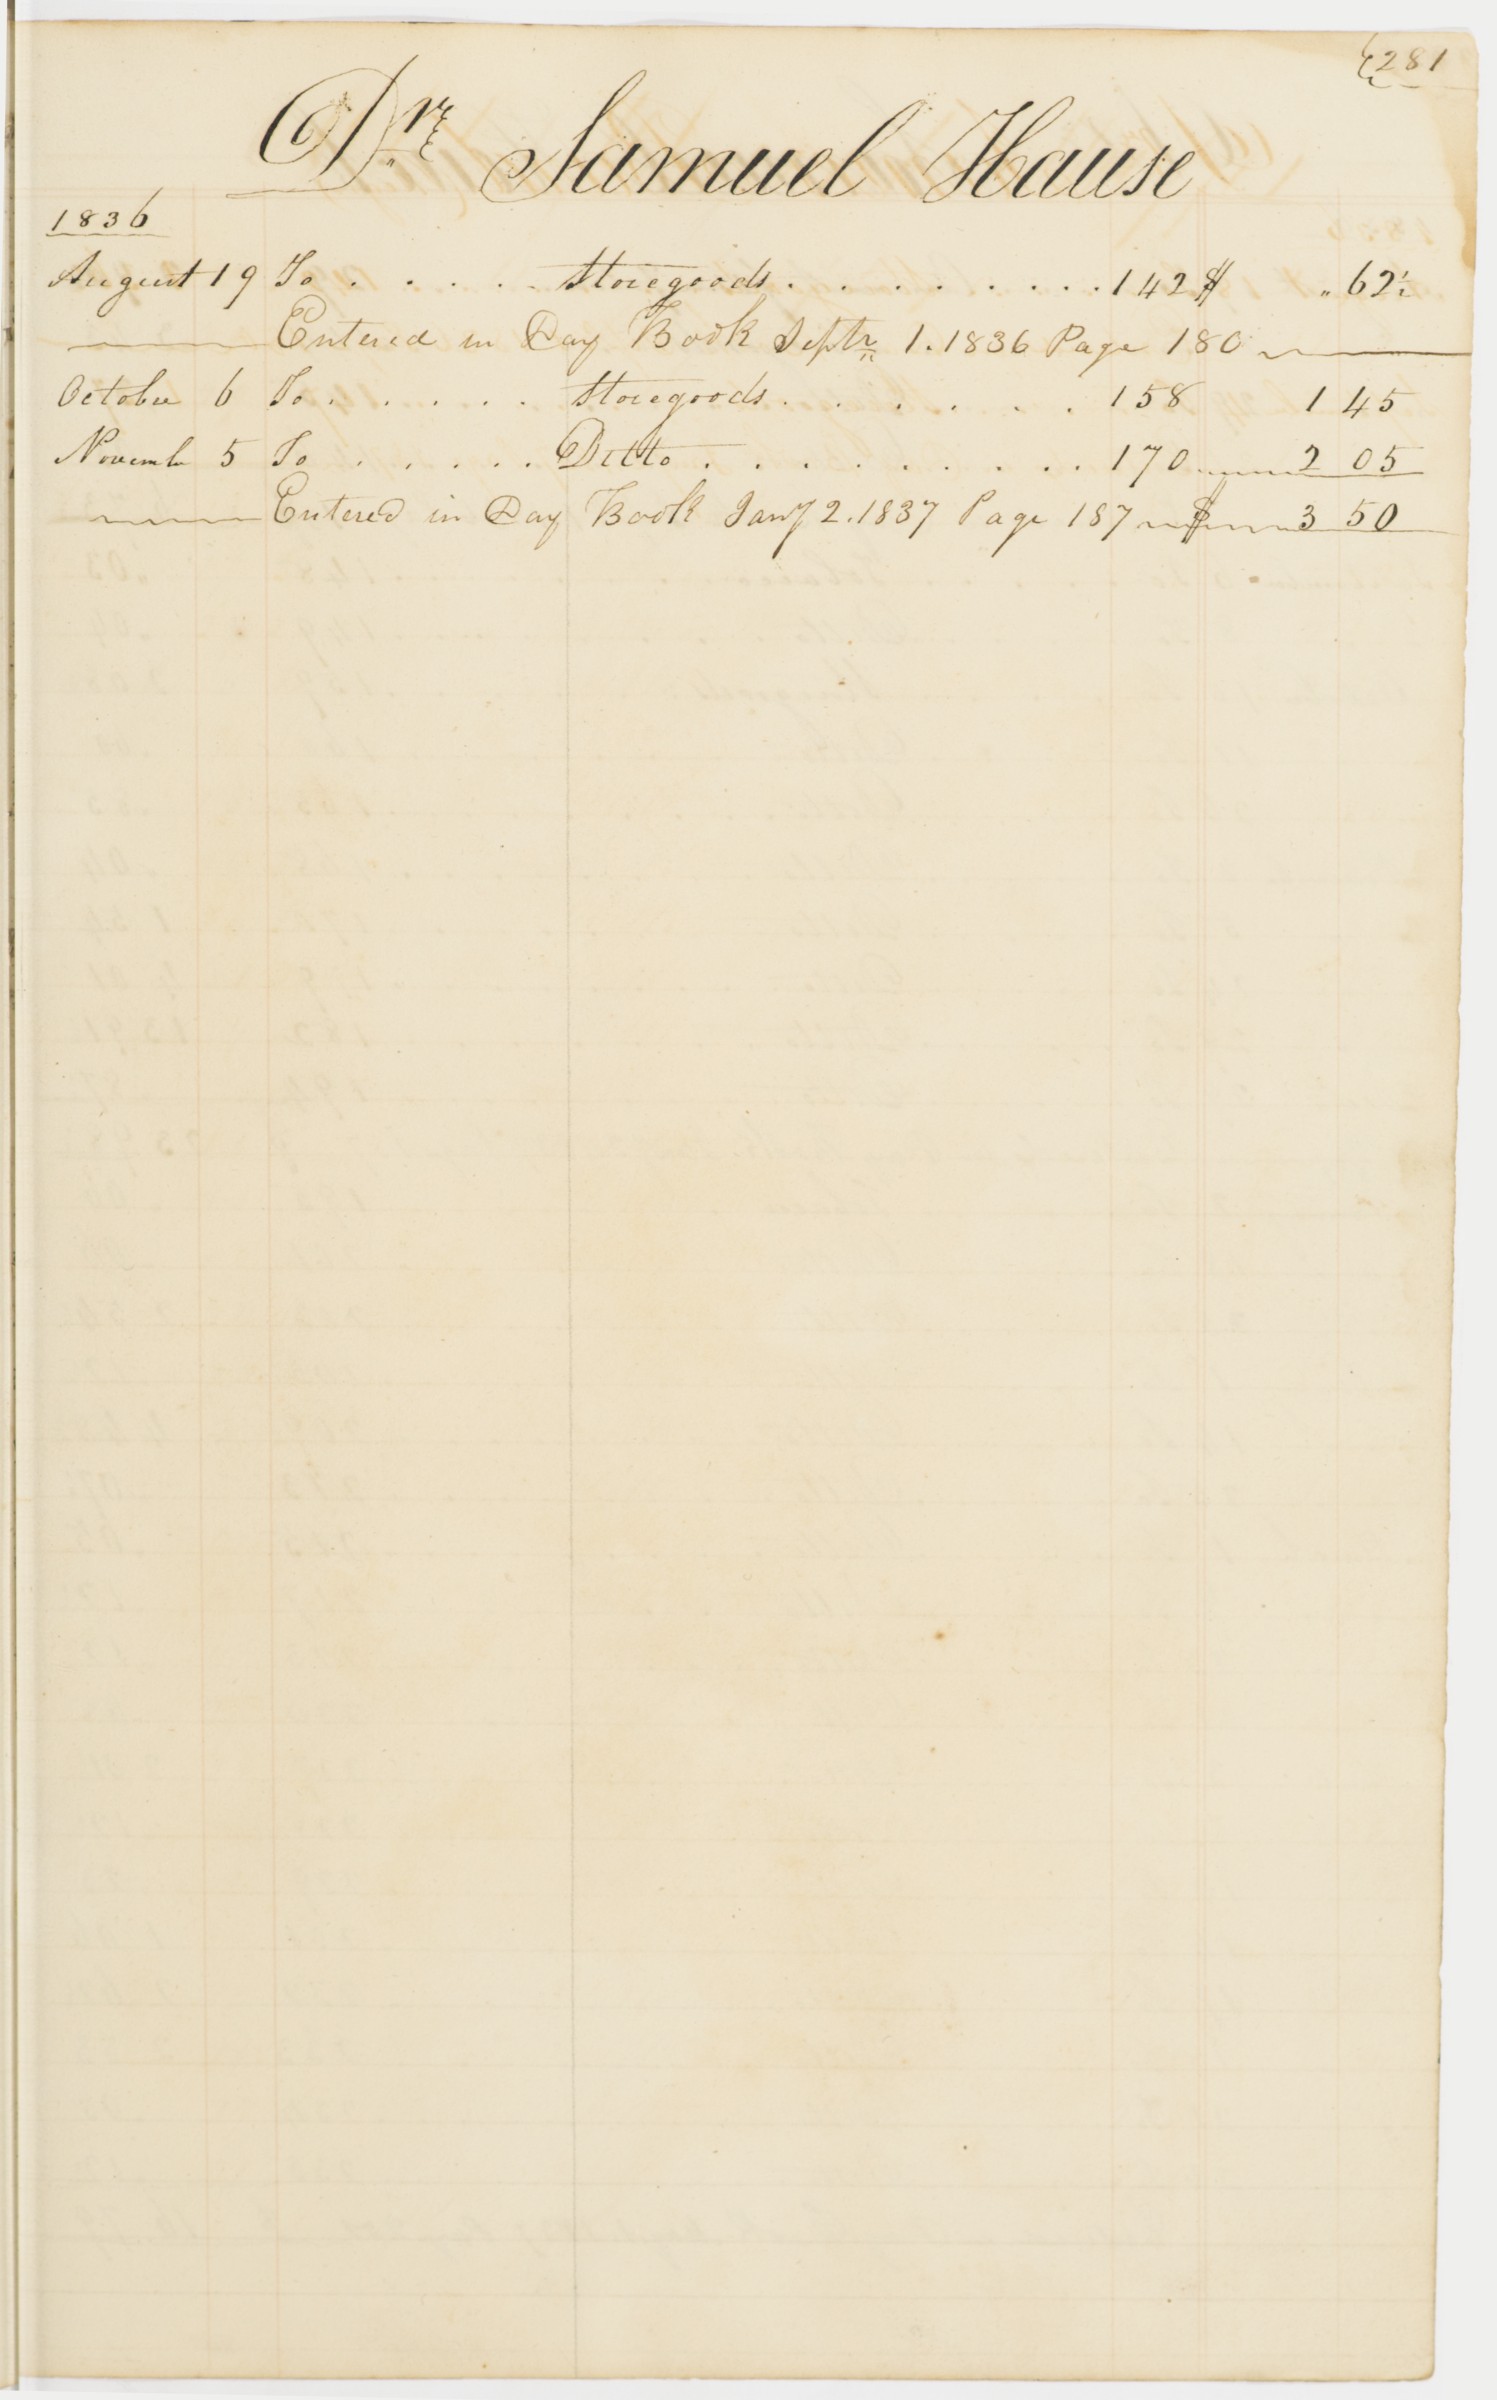 281
Dr. Samuel Hause
1836
August 19 To . . . . . Storegoods . . . . . . . . 142 $ " 62½
Entered in Day Book Septr 1. 1836 Page 180
October 6 To . . . . . Storegoods . . . . . . 158 1 45
Novembr 5 To . . . . . Ditto . . . . . . . . 170 2 05
Entered in Day Book Jany 2. 1837 Page 187 $ 3 50